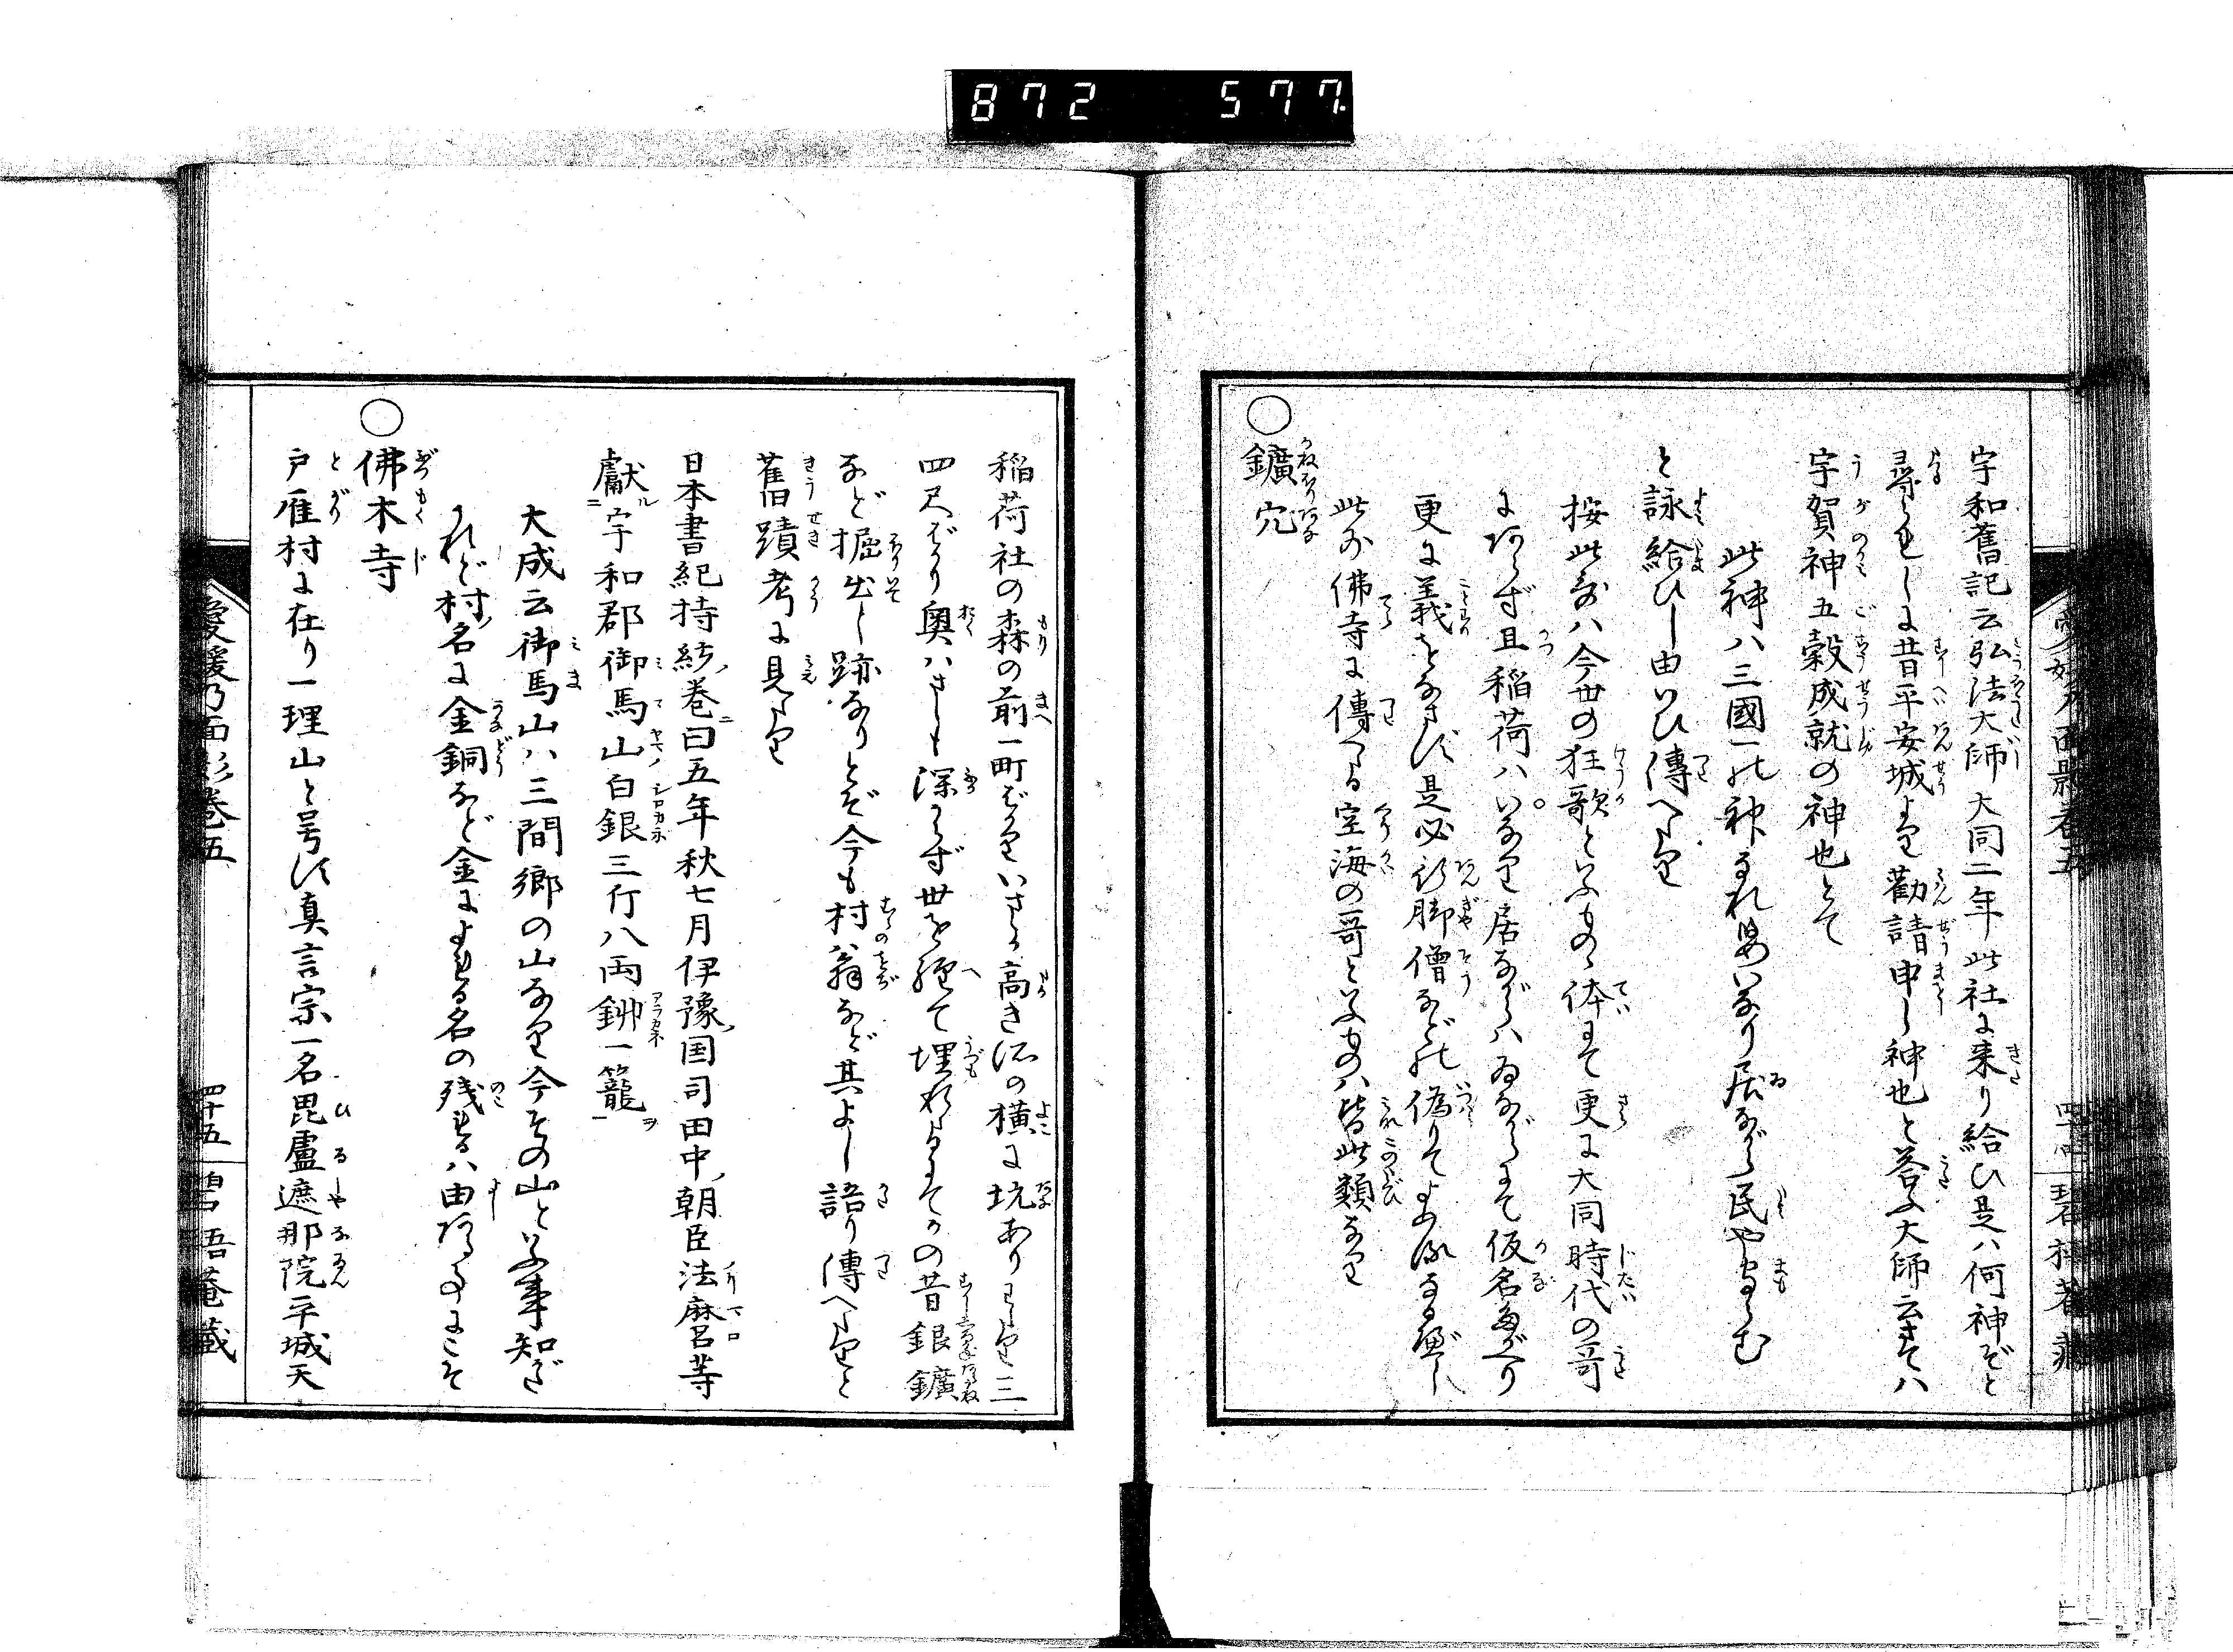 872 577
宇和舊記云弘法大師大同二年此社に来り給ひ是ハ何神ぞと
尋られしに昔平安城より勸請申し神也と答ふ大師云さてハ
宇賀神五穀成就の神也とて
此神ハ三國一の神なれ いなり居ながら民や守らむ
と詠給ひし由いひ傳へたり
按此哥ハ今世の狂歌といふものゝ体にて更に大同時代の哥
にあらず且稲荷ハいなり居ながらハゐながらにて仮名たがへり
更に義をなさず是必行脚僧などの偽りてよめるなるべし
此外佛寺に傳へたる空海の哥といふものハ皆此類なり
○鑛穴
稲荷社の森の前一町ばかりいさゝか高き所の横に坑ありわたり三
四尺ばかり奥ハさしも深からず世を経て埋れたるにてかの昔銀鑛
など掘出し跡なりとぞ今も村翁など其よし語り傳へたりと
舊蹟考に見えたり
日本書紀持統巻曰五年秋七月伊豫国司田中朝臣法麻呂等
獻宇和郡御馬山白銀三斤八両鉚一籠
大成云御馬山ハ三間郷の山なり今その山といふ事知ざ
れど村名に金銅など金によれる名の残れるハ由ある事にこそ
○佛木寺
戸雁村に在り一理山と号す真言宗一名毘盧遮那院平城天
愛媛乃面影巻五
四十五
碧梧菴藏